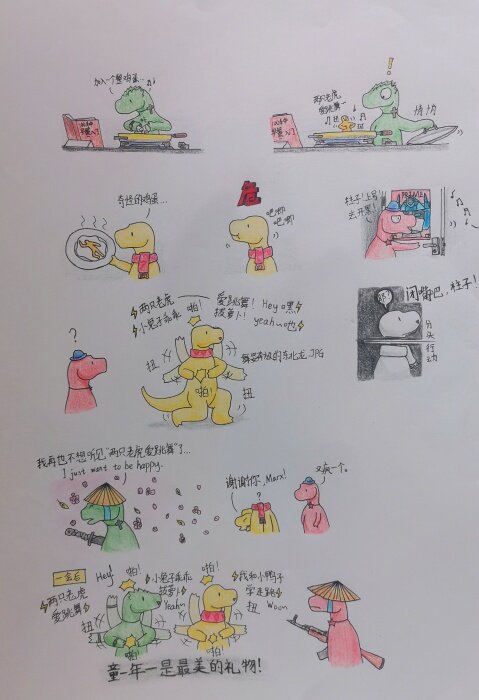 加入一个整鸡蛋…
两只老虎
爱跳舞~
!
悄悄
奇怪的鸡蛋…
危
吧唧
吧唧
柱子!上号
去开黑!
PRIME
闭嘴巴,柱子!
分头行动
两只老虎
小兔子乖乖
啪!
爱跳舞! Hey 嘿
拔萝卜! yeah 吔
扭
啪!
扭
舞姿奔放的东北龙.JPG
?
我再也不想听见“两只老虎
爱跳舞”了…
I just want to be happy.
谢谢你,Marx!
?
又疯一个。
一会后
Hey!
啪!
两只老虎
爱跳舞
扭
啪!
小兔子乖乖
拔萝卜
Yeah
啪!
我和小鸭子
学走路
扭
Woon
童年—是最美的礼物!